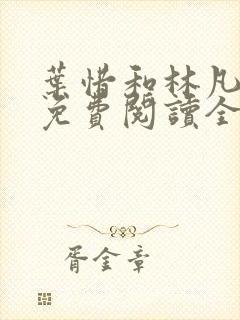 葉惜和林凡
免費閱讀全
胥金章